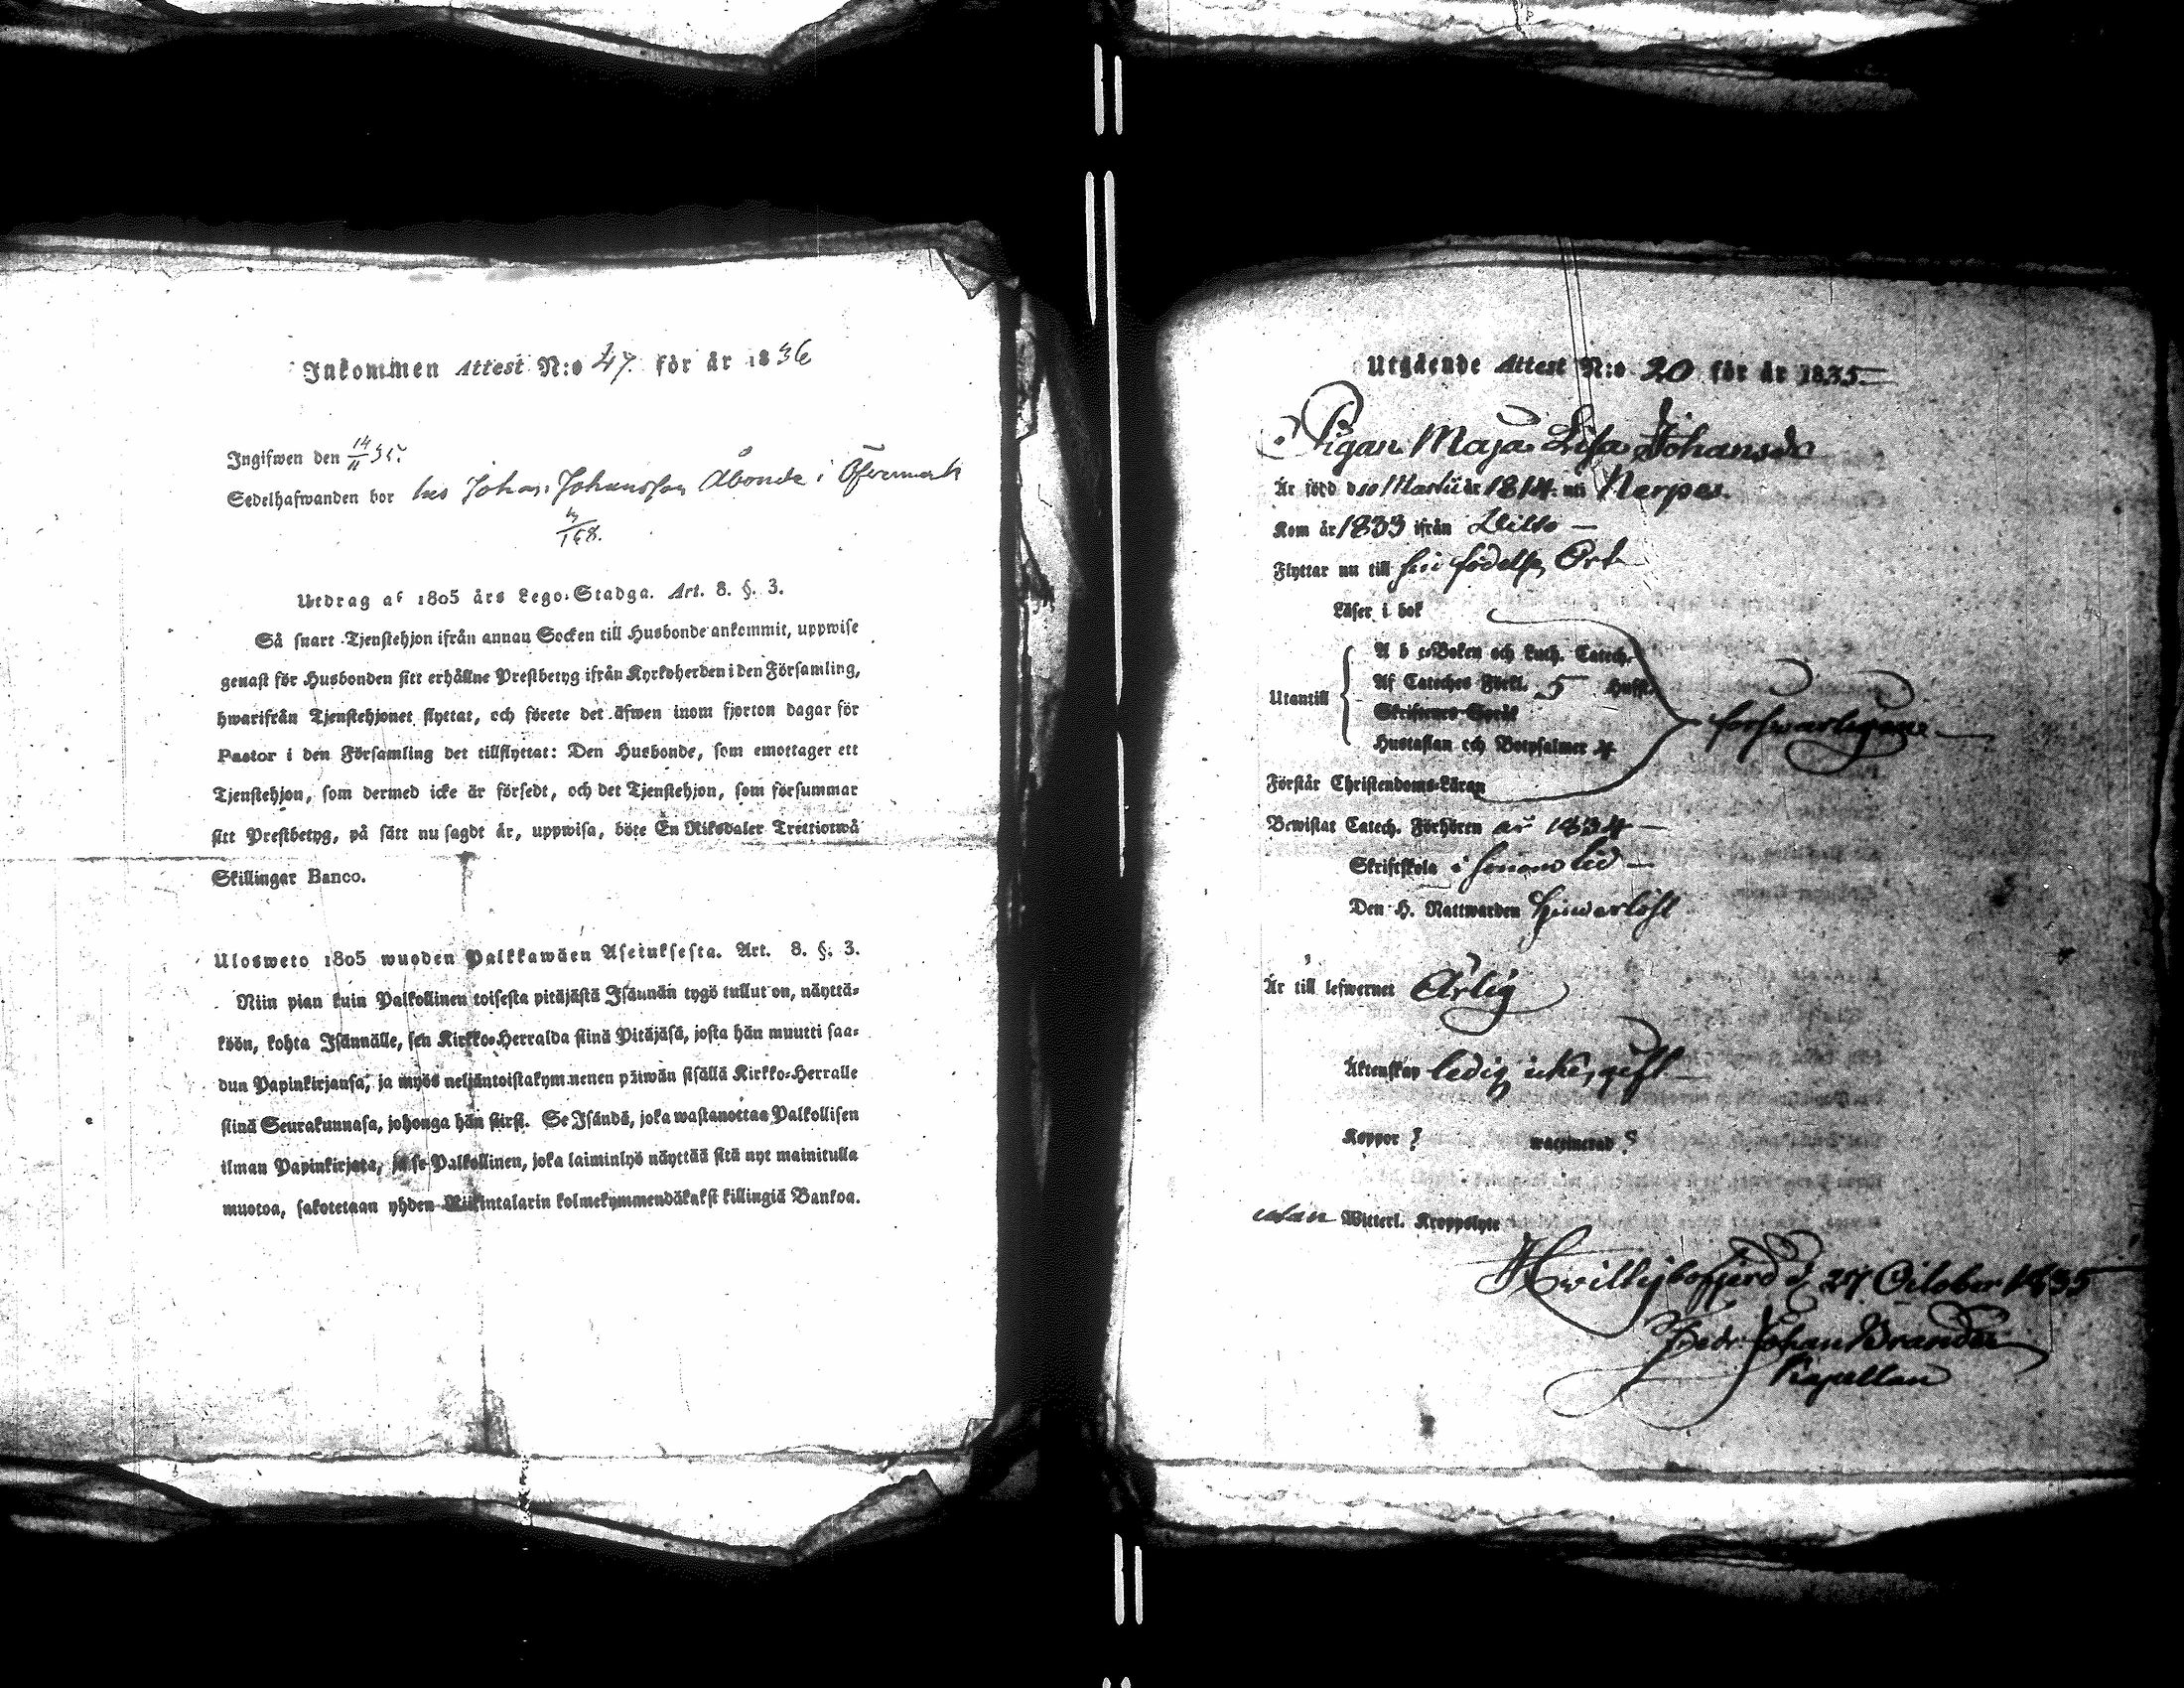 Inkommen Attest N:o 47. för år 1836
Ingifwen den 14/11 35.
Sedelhafwanden bor hos Johan Johansson Åbonde i Öfvermark
168.
Utdrag af 1805 års Lego-Stadga. Art. 8. §. 3.
Så snart Tjenstehjon ifrån annan Socken till Husbonde ankommit, uppwise
genast för Husbonden sitt erhållne Prestbetyg ifrån Kyrkoherden i den Församling,
hwarifrån Tjenstehjonet flyttat, och förete det äfwen inom fjorton dagar för
Pastor i den Församling det tillflyttat: Den Husbonde, som emottager ett
Tjenstehjon, som dermed icke är försedt, och det Tjenstehjon, som försummar
sitt Prestbetyg, på sätt nu sagdt är, uppwisa, böte En Riksdaler Trettiotwå
Skillingar Banco.
Ulosweto 1805 wuoden Palkkawäen Aseinksesta. Art. 8. §. 3.
Niin pian kuin Palkollinen toisesta pitäjästä Isännän tygö tullut on, näyttä-
köön, kohta Isännälle, sen Kirkko-Herralda siinä Pitäjäsä, josta hän muutti saa-
dun Papinkirjansa, ja myös neljäntoistakymmenen päiwän sisällä Kirkko-Herralle
siinä Seurakunnasa, johonga hän siirsi. Se Isändä, joka wastanottaa Palkollisen
ilman Papinkirjata, ja se Palkollinen, joka laiminlyö näyttää sitä nyt mainitulla
muotoa, sakotetaan yhden Riikintalarin kolmekymmendäkaksi killingiä Bankoa.
Utgående Attest N:o 20 för år 1835
Pigan Maja Lisa Johansdr
Är född d 10 Martii år 1814 uti Nerpes.
Kom år 1833 ifrån
Flyttar nu till sin födelse Ort
Läser i bok
Utantill
A b c-Boken och Luth. Catech.
Af Cateches Förkl. 5 Hufst.
Skriftenes Språk
Hustaflan och Botpsalmer 4
försvarligare
Förstår Christendoms-Läran
Bewistat Catech. Förhören år 1834
Skriftskola i sinom tid
Den H. Nattwarden
Är till lefwernet Ärlig
Äktenskap ledig icke gift
Koppor ? waccinerad ?
utan Witterl. Kroppslyte
d. 27 October 1835
Fredr Johan Brander
Kapellan